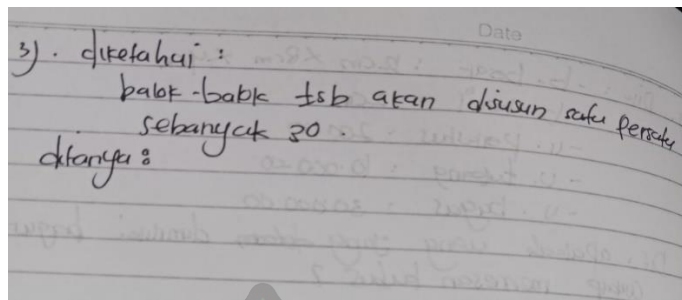 Date
3). diketahui :
balok-balok tsb akan disusun satu persatu
sebanyak 30.
ditanya :